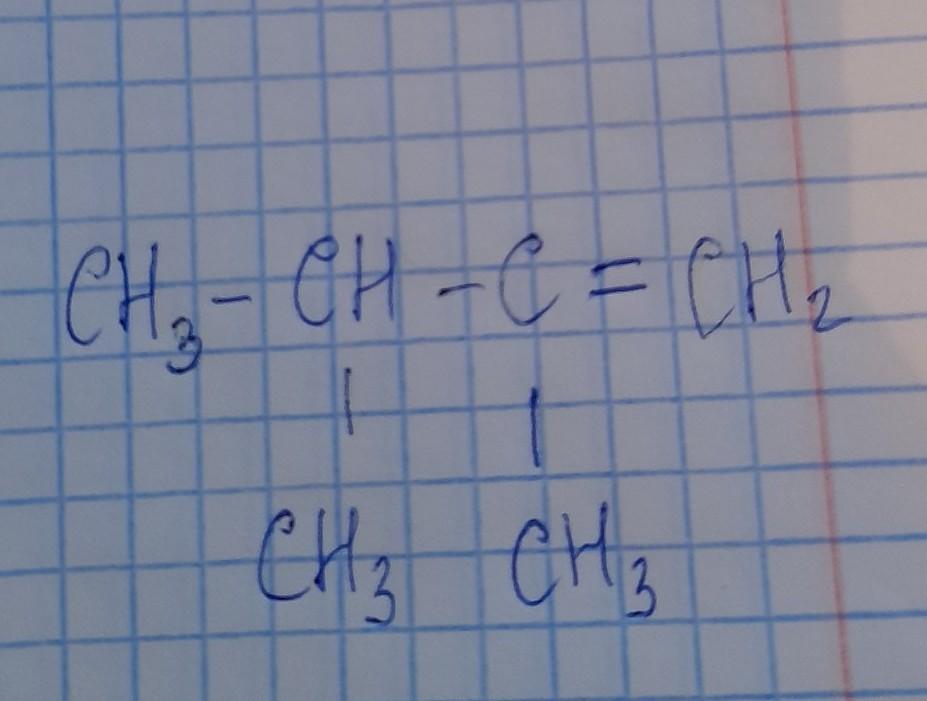 CH₃ - CH - C = CH₂
| |
CH₃ CH₃